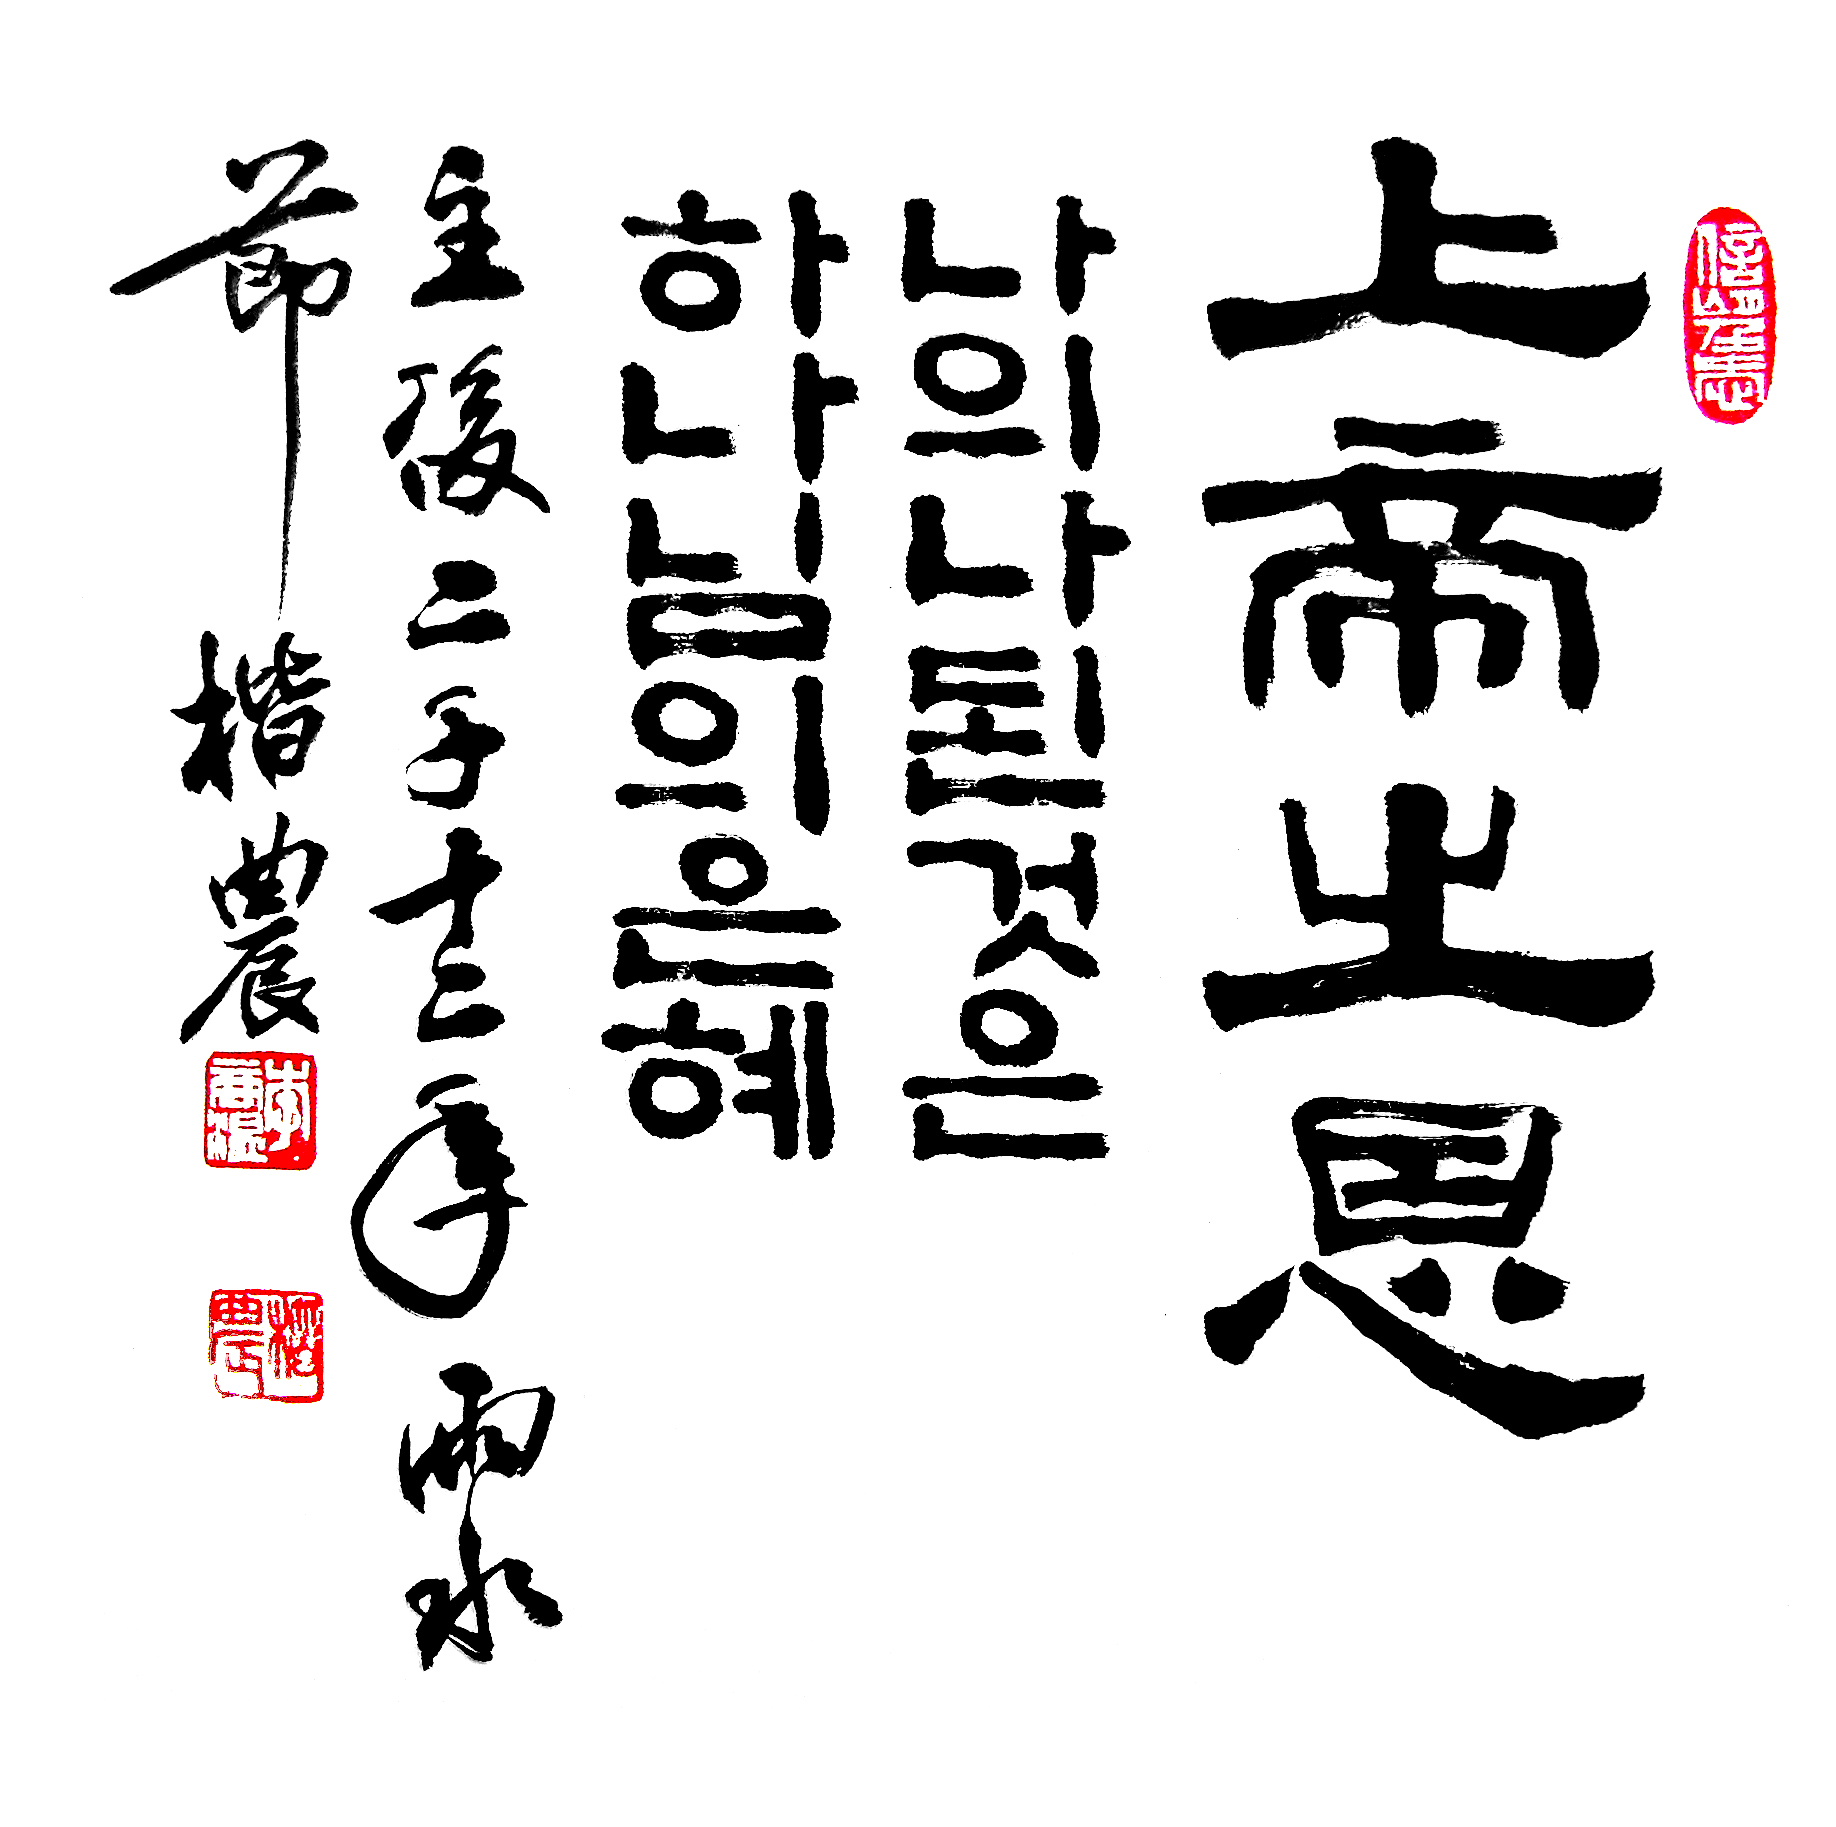 上帝之恩
나의나 된것은
하나님의 은혜
主後二千十二年 雨水
節 楷農